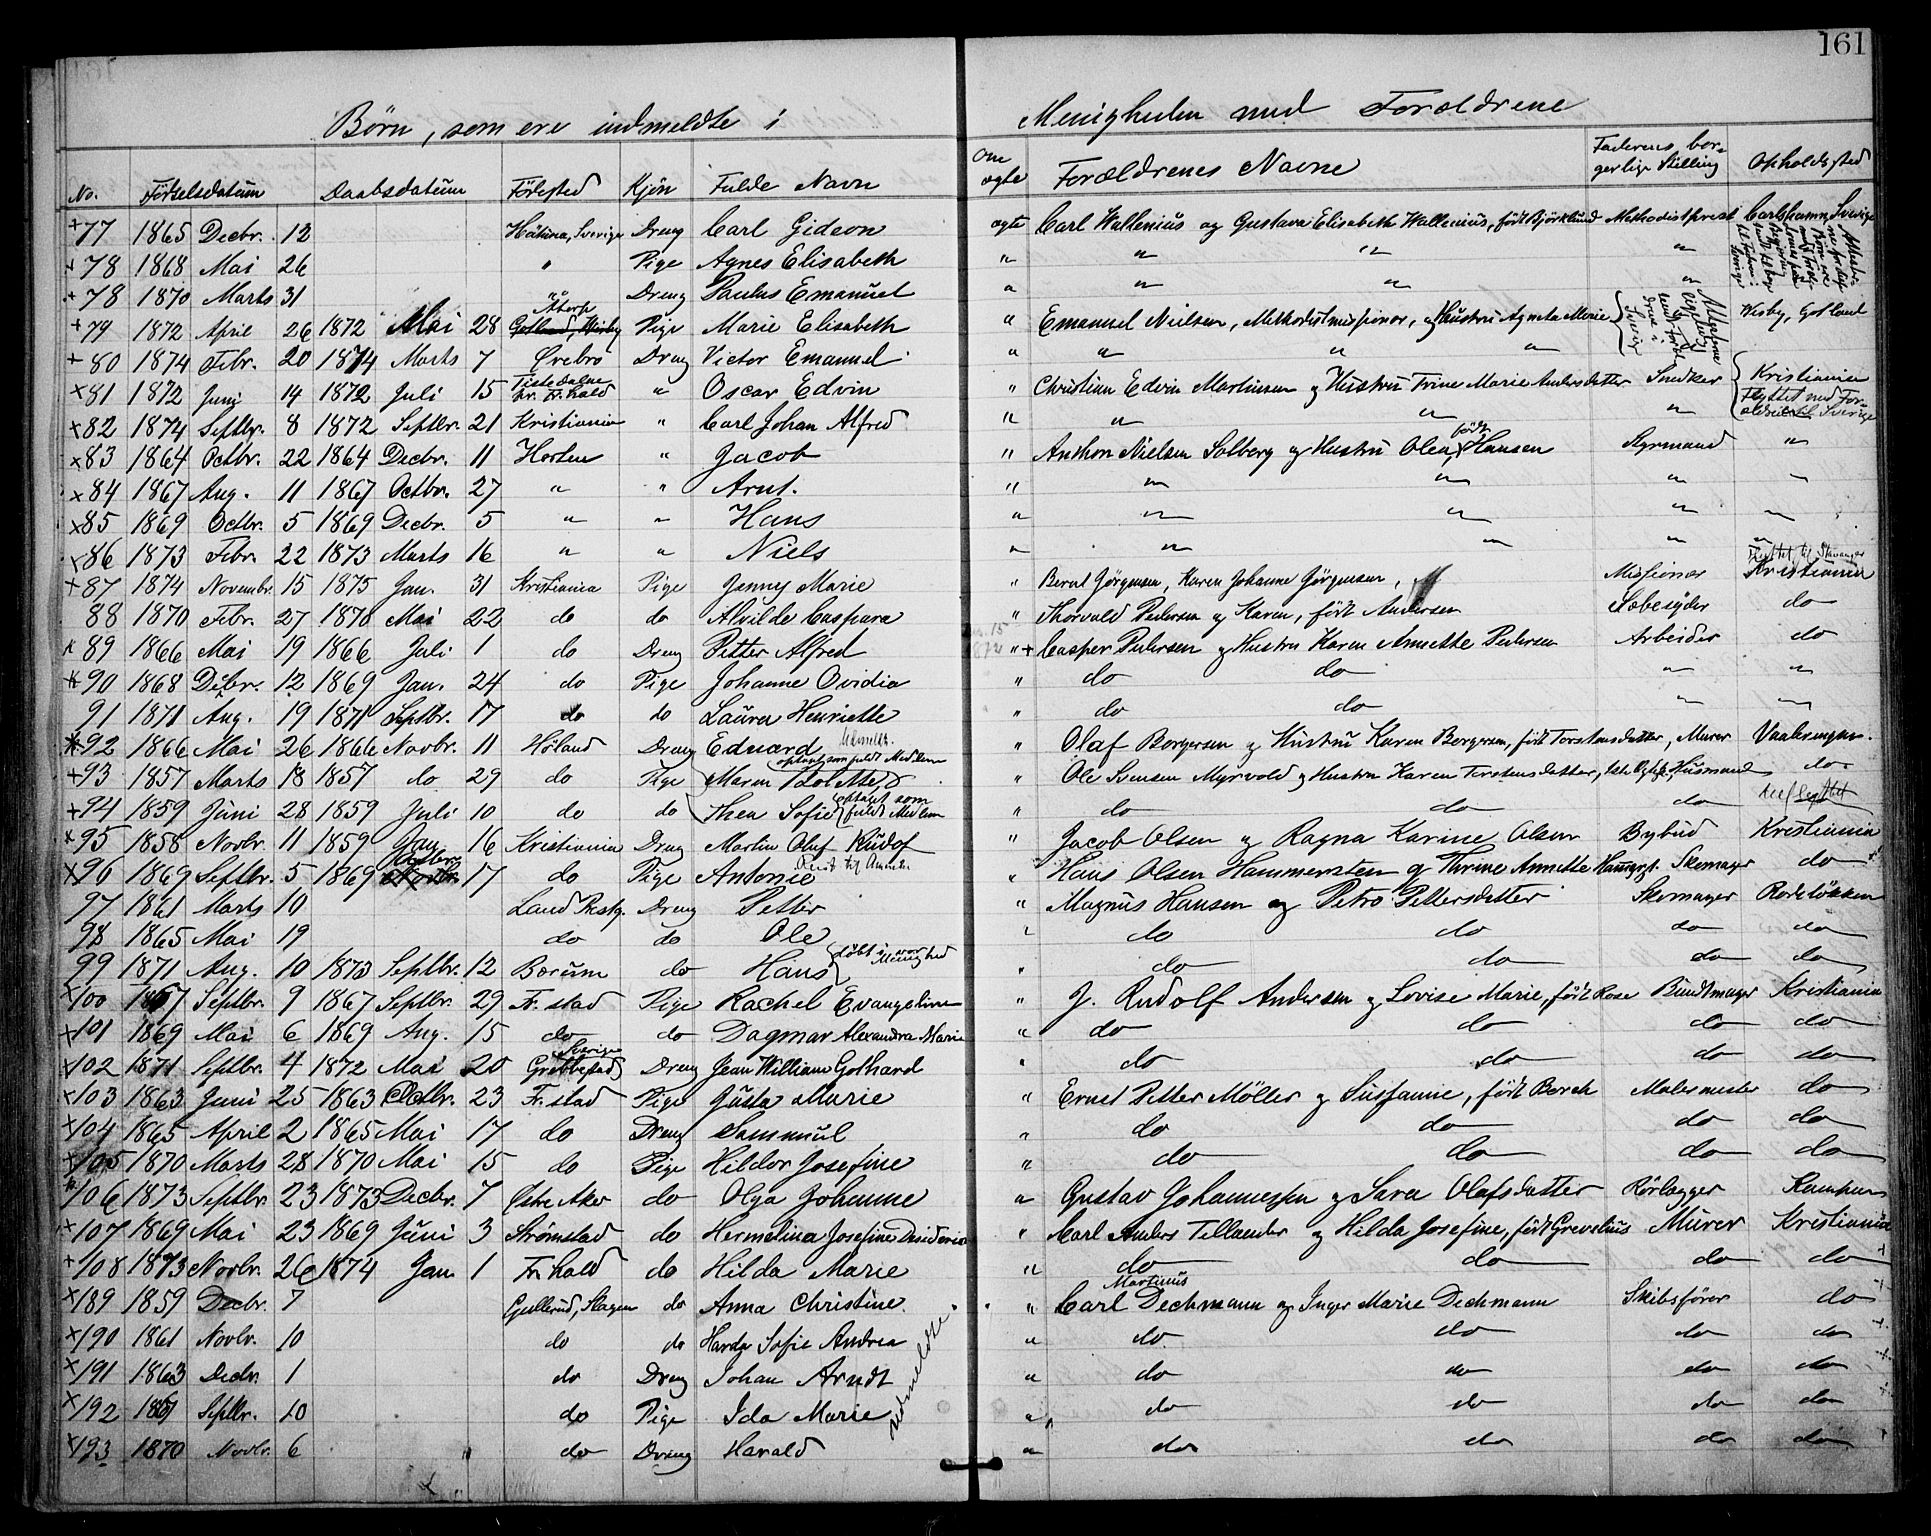 161
Børn, som ere indmeldte i Menigheden med Forældrene
No. Fødselsdatum Daabsdatum Fødested Kjøn Fulde Navn Om ægte Forældrenes Navne Faderens borgerlige Stilling Opholdssted
77 1865 Decbr. 12 Sverige Dreng Carl Gideon ægte Carl Wallenius og Gustava Elisabeth Wallenius, født Björklund Methodistprest Carlshamn, Sverige
78 1868 Mai 26 " Pige Agnes Elisabeth " " " "
78 1870 Marts 31 " Dreng Paulus Emanuel " " " "
79 1872 April 26 1872 Mai 28 Gotland, Wisby Pige Marie Elisabeth " Emanuel Nielsen, Methodistmissionær, og Hustru Agneta Marie Wisby, Gotland
80 1874 Febr. 20 1874 Marts 7 Örebro Dreng Victor Emanuel " " " "
81 1872 Juni 14 1872 Juli 15 Tistedalen pr. Fr.hald " Oscar Edvin " Christian Edvin Martinsen og Hustru Trine Marie Andersdatter Snedker Kristiania Flyttet med Forældrene til Sverige
82 1874 Septbr. 8 1872 Septbr. 21 Kristiania " Carl Johan Alfred " " " "
83 1864 Octbr. 22 1864 Decbr. 11 Horten " Jacob " Anthon Nielsen Solberg og Hustru Olea, født Hansen Styrmand "
84 1867 Aug. 11 1867 Octbr. 27 " " Arnt. " " " " "
85 1869 Octbr. 5 1869 Decbr. 5 " " Hans " " " " "
86 1873 Febr. 22 1873 Marts 16 " " Niels " " " " "
87 1874 Novembr. 15 1875 Jan. 31 Kristiania Pige Jenny Marie " Bernt Jörgensen, Karen Johanne Jörgensen, Missionær Flyttet til Stavanger Kristiania
88 1870 Febr. 27 1870 Mai 22 do do Alvilde Caspara " Thorvald Pedersen og Karen, født Andersen Sæbesyder do
89 1866 Mai 19 1866 Juli 1 do Dreng Petter Alfred " + Casper Pedersen og Hustru Karen Annette Pedersen Arbeider do
90 1868 Decbr. 12 1869 Jan. 24 do Pige Johanne Ovidia " do do " "
91 1871 Aug. 19 1871 Septbr. 17 do do Laura Henriette " do do " "
92 1866 Mai 26 1866 Novbr. 11 Høland Dreng Eduard Udmeldt. " Olaf Borgersen og Hustru Karen Borgersen, født Torstensdatter, Murer Vaalerengen.
93 1857 Marts 18 1857 do 29 do Pige Maren Lolette, optagt som fuldt Medlem " Ole Svensen Myrvold og Hustru Karen Torstensdatter, Husmand do
94 1859 Juni 28 1859 Juli 10 do do Thea Sofie optaget som fuldt Medlem " do do do
95 1858 Novbr. 11 1859 Jan 16 Kristiania Dreng Martin Oluf Rudof " Jacob Olsen og Ragna Karine Olsen Bybud Kristiania
96 1869 Septbr. 5 1869 17 do Pige Antonie Reist til Amerika " Hans Olsen Hammersten og Thrine Annette Skomager do
97 1861 Marts 10 Land Prstg. Dreng Petter " Magnus Hansen og Petro Pettersdatter Skomager Rodeløkken
98 1865 Mai 19 do do Ole " do do do do
99 1871 Aug. 10 1873 Septbr. 12 Bærum do Hans døbt i vor Menighed " do do do do
100 1867 Septbr. 9 1867 Septbr. 29 Fr.stad Pige Rachel Evangeline " J. Rudolf Andersen og Lovise Marie, født Rose Buntmager Kristiania
101 1869 Mai 6 1869 Aug. 15 do do Dagmar Alexandra Marie " do do do do
102 1871 Septbr. 4 1872 Mai 20 Grebbestad Sverige Dreng Jean William Gothard " do do do do
103 1863 Juni 25 1863 Octbr. 23 Fr.stad Pige Gusta Marie " Ernst Petter Möller og Susanne, født Borch Malermester do
104 1865 April 2 1865 Mai 17 do Dreng Sammuel " do do do do
105 1870 Marts 28 1870 Mai 15 do Pige Hildor Josefine " do do do do
106 1873 Septbr. 23 1873 Decbr. 7 Østre Aker do Olga Johanne " Gustav Johannessen og Sara Olafsdatter Rørlægger Kampen
107 1869 Mai 23 1869 Juni 3 Strømstad do Hermelina Josefine Desideria " Carl Anders Tillander og Hilda Josefine, født Grevelius Murer Kristiania
108 1873 Novbr. 26 1874 Jan. 1 Fr.hald do Hilda Marie " do do do do
189 1859 Decbr. 7 Gullerud, Slagen do Anna Christine. " Carl Martinus Dechmann og Inger Marie Dechmann Skibsfører do
190 1861 Novbr. 10 do do Sofie Andrea " do do do do
191 1863 Decbr. 1 do Dreng Johan Arndt " do do do do
192 Septbr. 10 do Pige Ida Marie " do do do do
193 1870 Novbr. 6 do Dreng Harald " do do do do
Udmeldte.